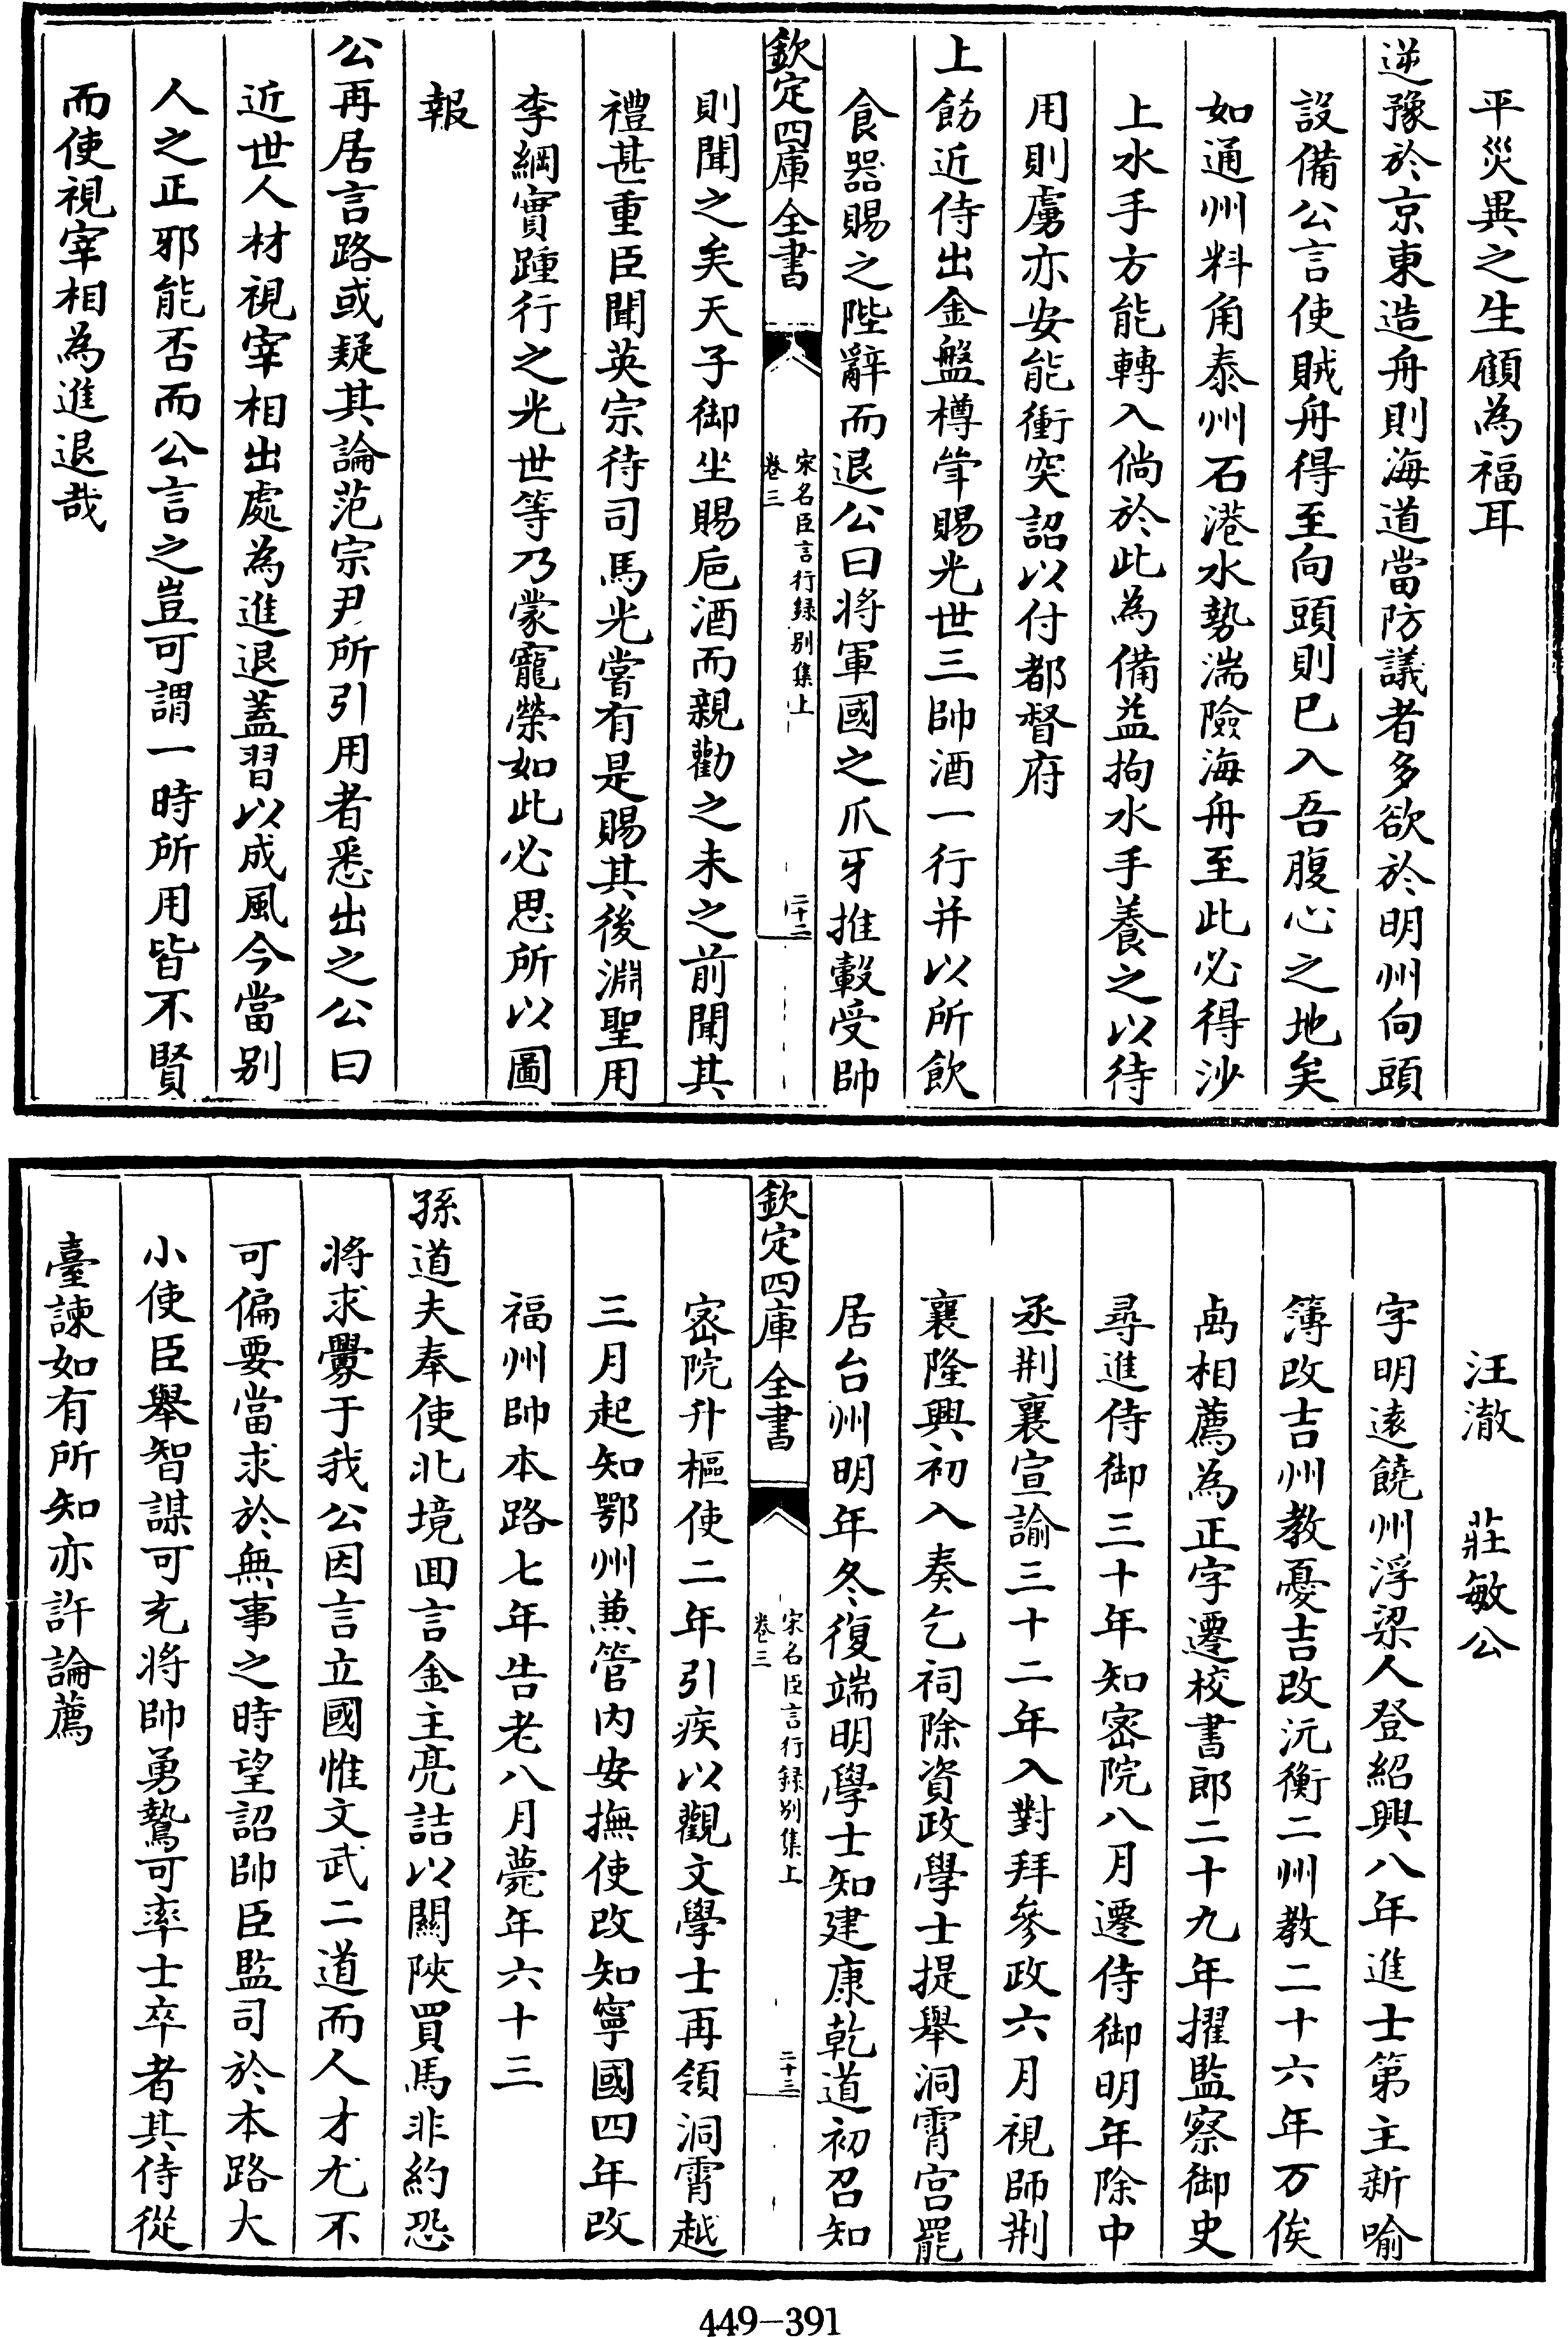 平災異之生顧為福耳
逆豫於京東造舟則海道當防議者多欲於明州向頭
設備公言使賊舟得至向頭則已入吾腹心之地矣
如通州料角泰州石港水勢湍險海舟至此必得沙
上水手方能轉入倘於此為備益拘水手養之以待
用則虜亦安能衝突詔以付都督府
上飭近侍出金盤樽斝賜光世三帥酒一行并以所飲
食器賜之陛辭而退公曰將軍國之爪牙推轂受帥
欽定四庫全書
宋名臣言行録別集上
卷三
二十二
則聞之矣天子御坐賜巵酒而親勸之未之前聞其
禮甚重臣聞英宗待司馬光嘗有是賜其後淵聖用
李綱實踵行之光世等乃蒙寵榮如此必思所以圖
報
公再居言路或疑其論范宗尹所引用者悉出之公曰
近世人材視宰相出處為進退蓋習以成風今當别
人之正邪能否而公言之豈可謂一時所用皆不賢
而使視宰相為進退哉
汪澈 莊敏公
字明遠饒州浮梁人登紹興八年進士第主新喻
簿改吉州教憂吉改沅衡二州教二十六年万俟
卨相薦為正字遷校書郎二十九年擢監察御史
尋進侍御三十年知宻院八月遷侍御明年除中
丞荆襄宣諭三十二年入對拜參政六月視師荆
襄隆興初入奏乞祠除資政學士提舉洞霄宫罷
居台州明年冬復端明學士知建康乾道初召知
欽定四庫全書
宋名臣言行録别集上
卷三
二十三
宻院升樞使二年引疾以觀文學士再領洞霄越
三月起知鄂州兼管内安撫使改知寧國四年改
福州帥本路七年告老八月薨年六十三
孫道夫奉使北境囬言金主亮詰以關陜買馬非約恐
將求釁于我公因言立國惟文武二道而人才尤不
可偏要當求於無事之時望詔帥臣監司於本路大
小使臣舉智謀可充將帥勇鷙可率士卒者其侍從
臺諫如有所知亦許論薦
449-391